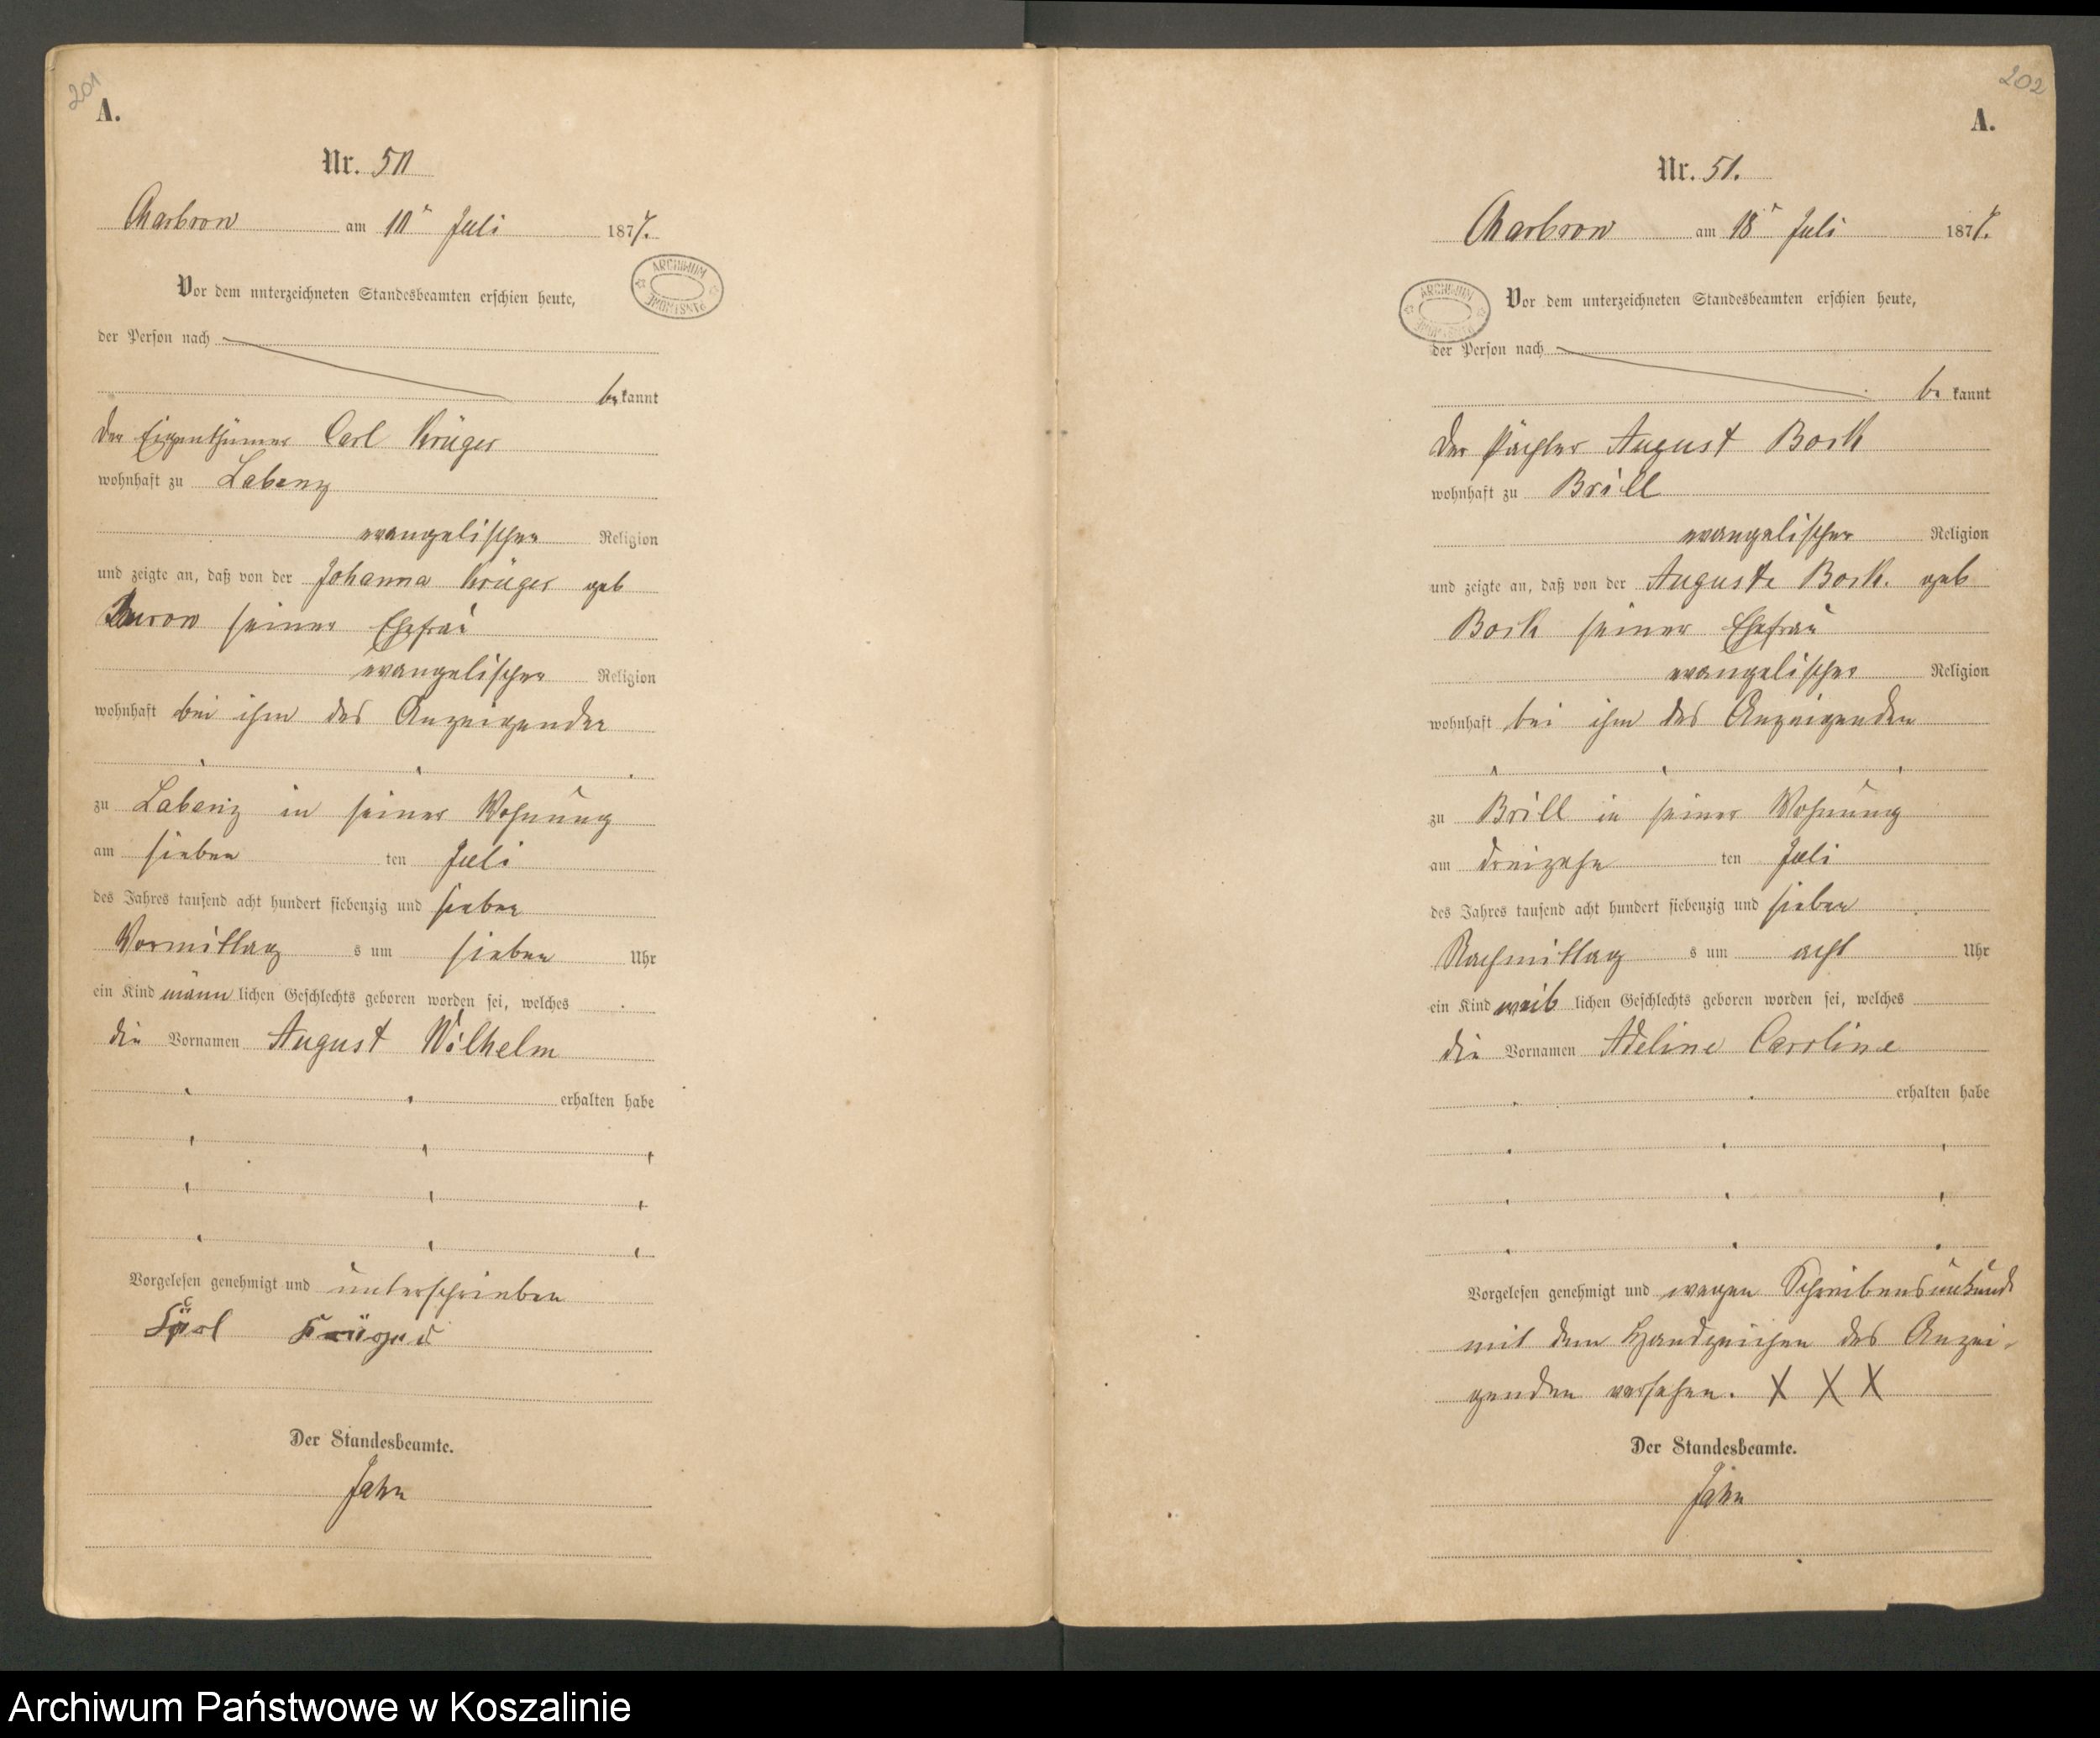 201
A.
Nr. 50
Charbrow am 10t Juli 1877.
Vor dem unterzeichneten Standesbeamten erschien heute,
ARCHIWUM PAŃSTWOWE
der Person nach
bekannt
der Eigenthümer Carl Krüger
wohnhaft zu Labenz
evangelischer Religion
und zeigte an, daß von der Johanna Krüger geb
Burow seiner Ehefrau
evangelischer Religion
wohnhaft bei ihm des Anzeigenden
zu Labenz in seiner Wohnung
am sieben ten Juli
des Jahres tausend acht hundert siebenzig und sieben
Vormittag s um sieben Uhr
ein Kind männ lichen Geschlechts geboren worden sei, welches
die Vornamen August Wilhelm
erhalten habe
Vorgelesen genehmigt und unterschrieben
Carl Krüger
Der Standesbeamte.
Jahn
202
A.
Nr. 51.
Charbrow am 18t Juli 1877.
ARCHIWUM PAŃSTWOWE
Vor dem unterzeichneten Standesbeamten erschien heute,
der Person nach
be kannt
der Pächter August Bork
wohnhaft zu Brill
evangelischer Religion
und zeigte an, daß von der Auguste Bork. geb
Bork seiner Ehefrau
evangelischer Religion
wohnhaft bei ihm des Anzeigenden
zu Brill in seiner Wohnung
am dreizehn ten Juli
des Jahres tausend acht hundert siebenzig und sieben
Nachmittag s um acht Uhr
ein Kind weib lichen Geschlechts geboren worden sei, welches
die Vornamen Adeline Caroline
erhalten habe
Vorgelesen genehmigt und wegen Schreibensunkunde
mit dem Handzeichen des Anzei-
genden versehen. X X X
Der Standesbeamte.
Jahn
Archiwum Państwowe w Koszalinie